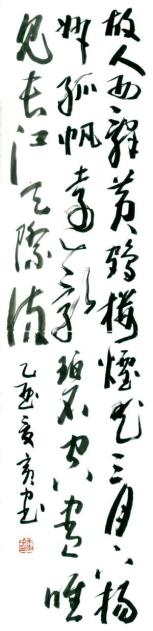 故人西辭黄鶴樓煙花三月下揚
州孤帆遠影碧空盡唯
見長江天際流
乙酉夏書